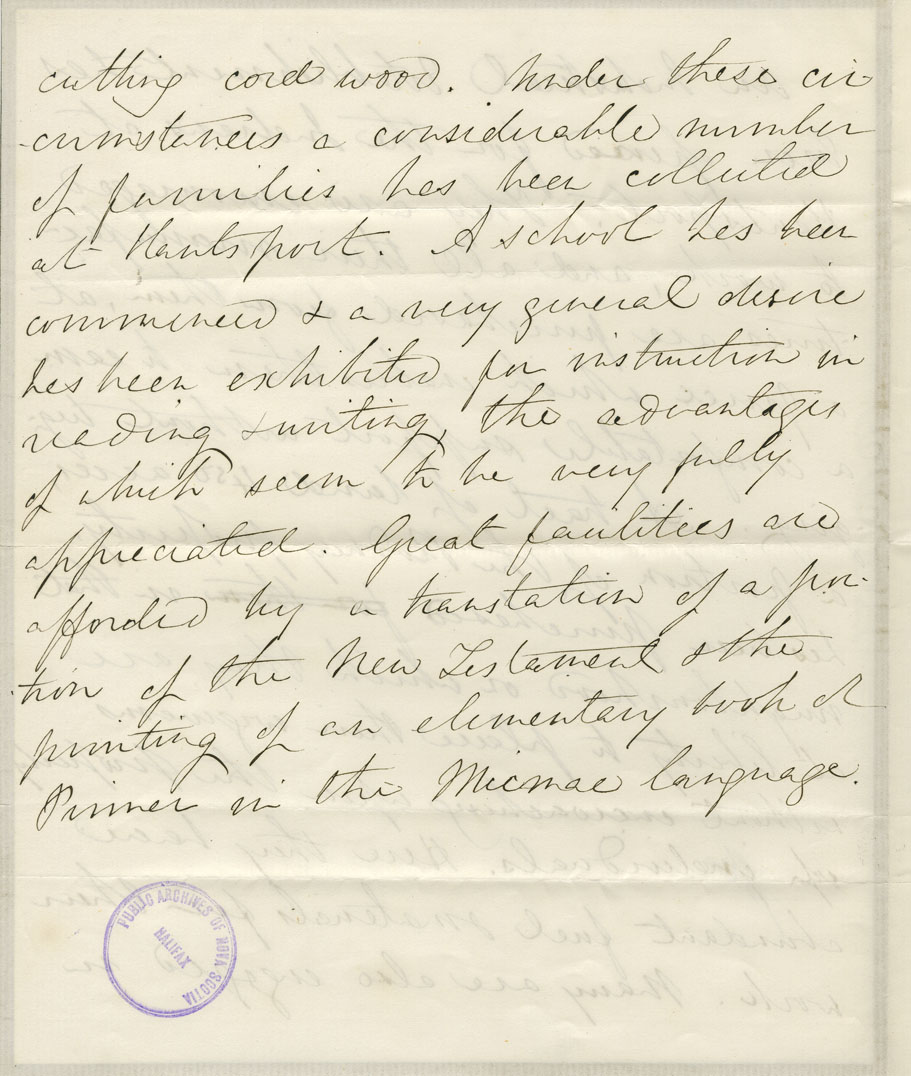 cutting cord wood. Under these cir-
-cumstances a considerable number
of families has been collected
at Hantsport. A school has been
commenced & a very general desire
has been exhibited for instruction in
reading & writing, the advantages
of which seem to be very fully
appreciated. Great facilities are
afforded by a translation of a por-
-tion of the New Testament & the
printing of an elementary book or
Primer in the Micmac language.
PUBLIC ARCHIVES OF NOVA SCOTIA
HALIFAX